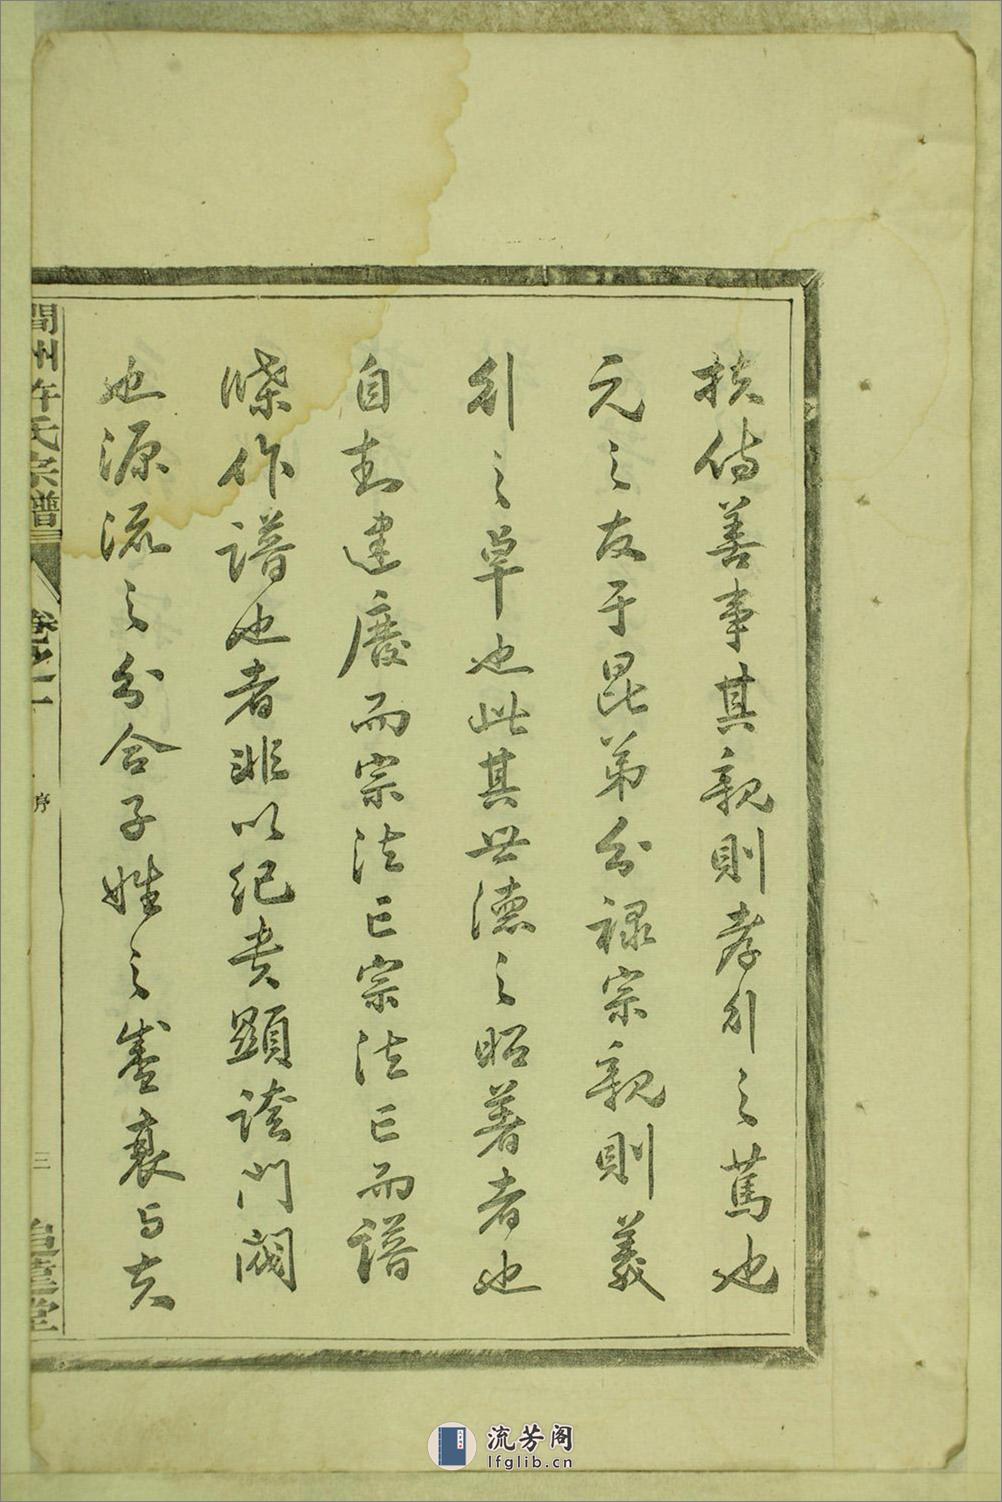 扶侍善事其親則孝行之篤也
元之友于昆弟分祿宗親則義
行之卓也此其世德之昭著者也
自封建廢而宗法亡宗法亡而譜
牒作譜也者非以紀貴顯誇門閥
也源流之分合子姓之盛衰与夫
間州許氏宗譜
卷之一
序
三
流芳阁
lfglib.cn